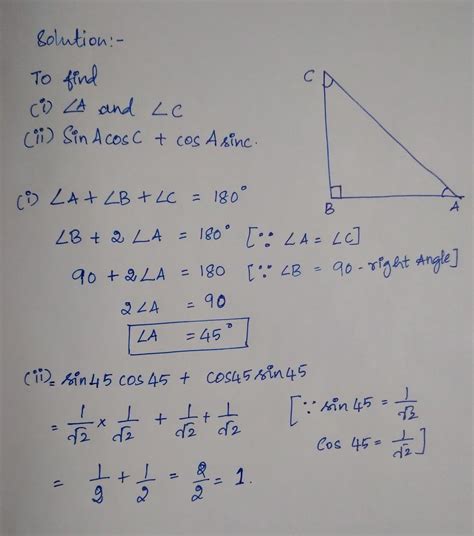 Solution:-
To find
(i) ∠A and ∠C
(ii) Sin A cos C + cos A sin c.
C
B
A
(i) ∠A + ∠B + ∠C = 180°
∠B + 2 ∠A = 180° [∵ ∠A = ∠C]
90 + 2∠A = 180 [∵ ∠B = 90 - right Angle]
2∠A = 90
∠A = 45°
(ii) = sin 45 cos 45 + cos 45 sin 45
= 1/√2 × 1/√2 + 1/√2 + 1/√2 [∵ sin 45 = 1/√2
cos 45 = 1/√2]
= 1/2 + 1/2 = 2/2 = 1.